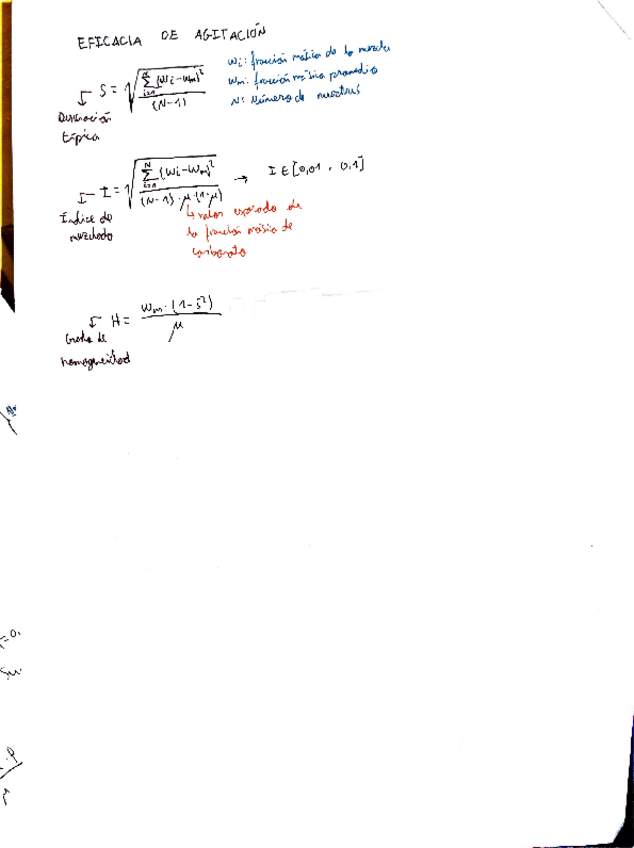 EFICACIA DE AGITACIÓN
S = √(∑_{i=1}^{N} (Wi - Wm)² / (N-1))
Desviación típica
Wi: fracción másica de la muestra
Wm: fracción másica promedio
N: Número de muestras
I = √(∑_{i=1}^{N} (Wi - Wm)² / ((N-1)·μ·(1-μ))) → I ∈ [0,01 , 0,1]
Índice de
mezclado
↳ valor esperado de
la fracción másica de
carbonato
H = Wm·(1-s²) / μ
Grado de
homogeneidad